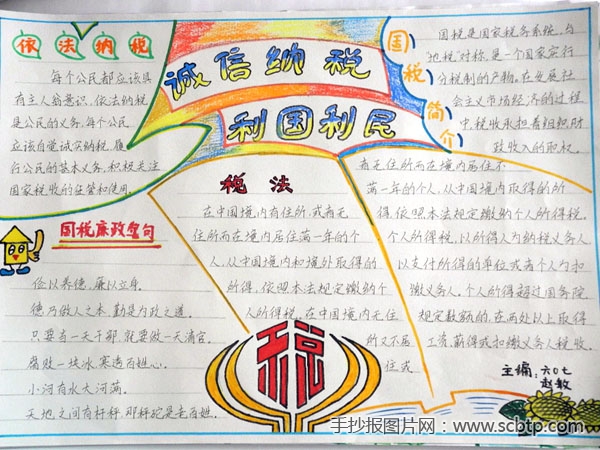 依法纳税
每个公民都应该具
有主人翁意识,依法纳税
是公民的义务,每个公民
应该自觉诚实纳税,履
行公民的基本义务,积极关注
国家税收的征管和使用。
诚信纳税
利国利民
国税简介
国税是国家税务系统,与
“地税”对称,是一个国家实行
分税制的产物。在发展社
会主义市场经济的过程
中,税收承担着组织财
政收入的职权。
国税廉政警句
俭以养德,廉以立身。
德乃做人之本,勤是为政之道。
只要当一天干部,就要做一天清官。
腐败一块冰,寒透百姓心。
小河有水大河满。
天地之间有杆秤,那秤砣是老百姓。
税法
在中国境内有住所,或者无
住所而在境内居住满一年的个
人,从中国境内和境外取得的
所得,依照本法规定缴纳个
人所得税。在中国境内无住
所又不居
住或
者无住所而在境内居住不
满一年的个人,从中国境内取得的所
得,依照本法规定缴纳个人所得税。
个人所得税,以所得人为纳税义务人,
以支付所得的单位或者个人为扣
缴义务人。个人所得超过国务院
规定数额的,在两处以上取得
工资、薪得或扣缴义务人税收。
税
主编:六〇七
赵毅
手抄报图片网:www.scbtp.com